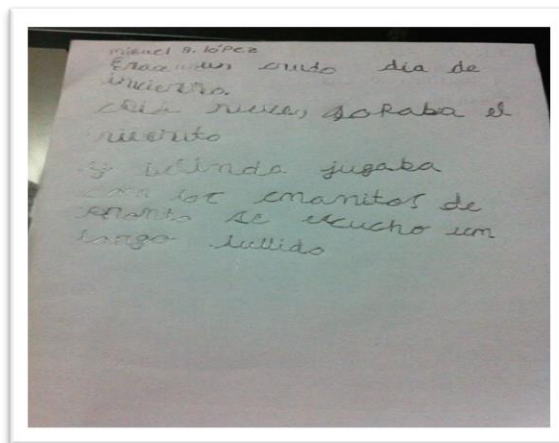 miguel A. lópez
Erase un crudo dia de
invierno.
caia nieve, soplaba el
viento
y belinda jugaba
con los enanitos de
pronto se escucho um
largo